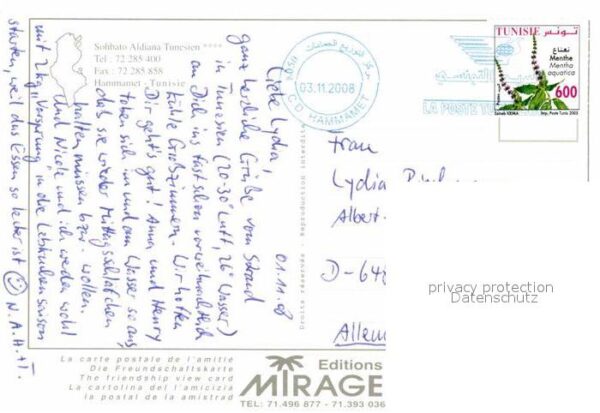 Sohbato Aldiana Tunesien ****
Tel : 72 285 400
Fax : 72 285 858
Hammamet - Tunisie
01.11.08
Liebe Lydia,
ganz herzliche Grüße vom Strand
in Tunesien (20-30° Luft, 26° Wasser)
an Dich ins fast schon vorweihnachtlich
kühle Wir hoffen
Dir geht's gut! Anna und Henry
toben sich in und am Wasser so aus,
daß sie wieder Mittagsschläfchen
halten müssen bzw. wollen.
Und Nicole und ich werden wohl
mit 2 kg Vorsprung in die Lebkuchensaison
starten, weil das Essen so lecker ist ☺ N.A.H.+T.
مركز التوزيع الحمامات
03.11.2008
C.D HAMMAMET
LA POSTE TU
TUNISIE تونس
نعناع
Menthe
Mentha
aquatica
600
Imp. Poste Tunis 2003
Frau
Lydia
Albert-
D-64
Allem
privacy protection
Datenschutz
Droits réservés - Reproduction interdite
La carte postale de l'amitié
Die Freundschaftskarte
The friendship view card
La cartolina del l'amicizia
la postal de la amistrad
Editions
MIRAGE
TEL: 71.496 877 - 71.393 036